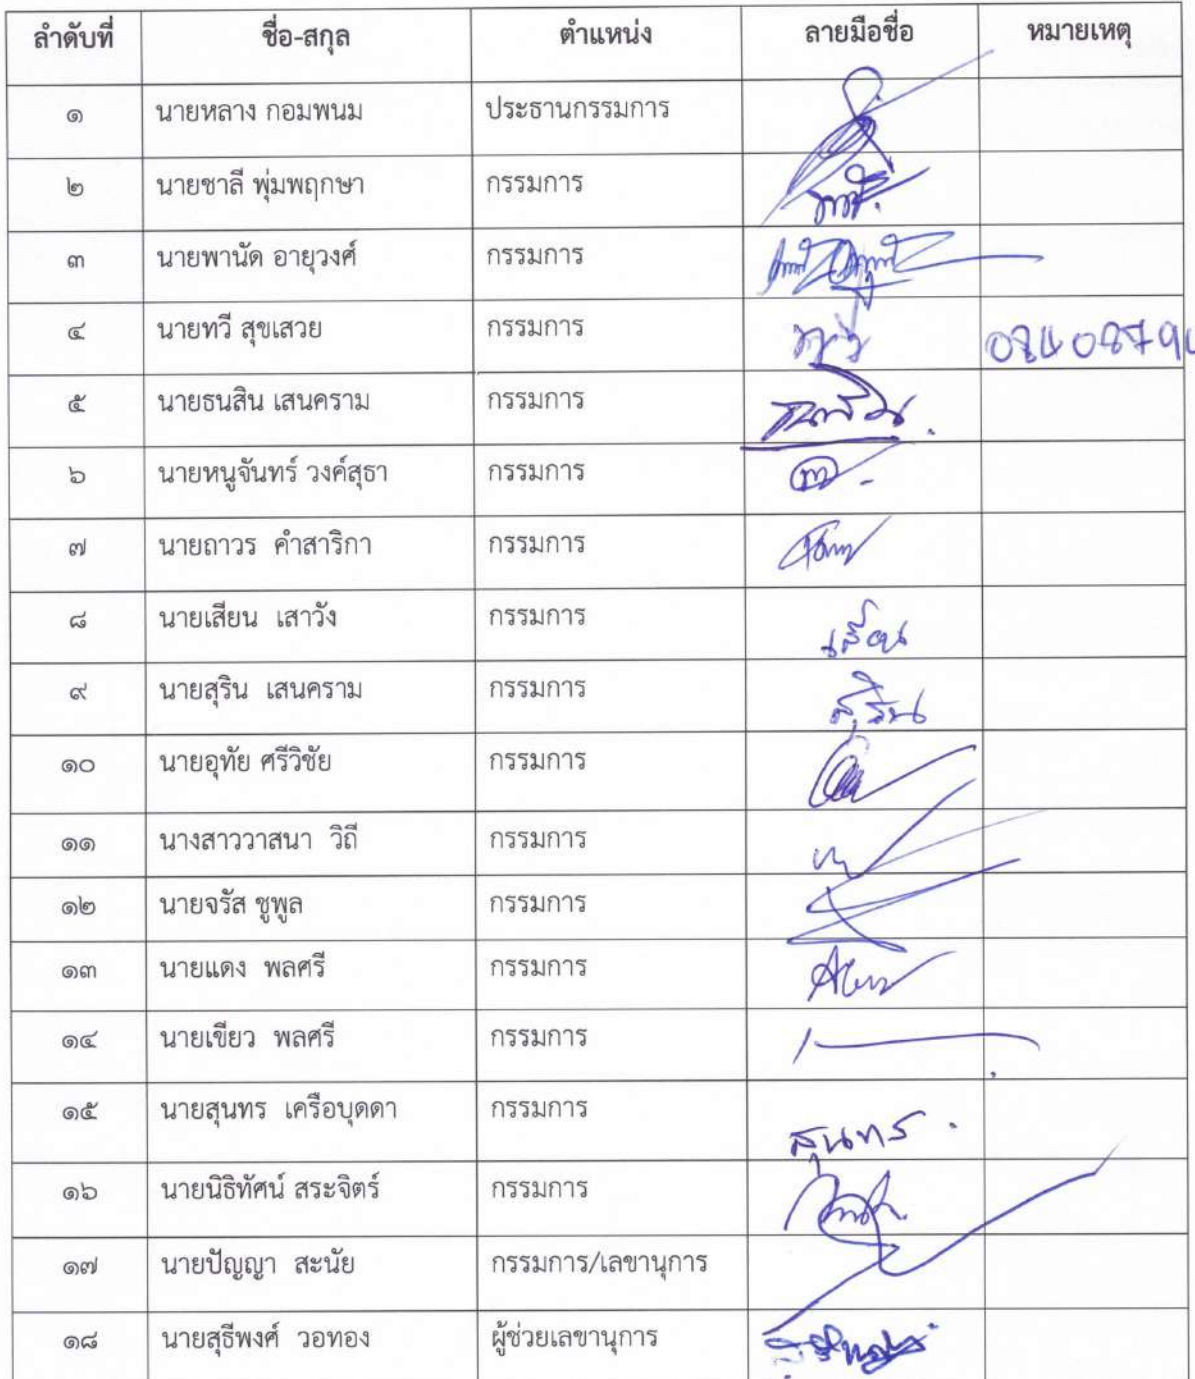 ลำดับที่ ชื่อ-สกุล ตำแหน่ง ลายมือชื่อ หมายเหตุ
๑ นายหลาง กอมพนม ประธานกรรมการ
๒ นายชาลี พุ่มพฤกษา กรรมการ
๓ นายพานัด อายุวงศ์ กรรมการ
๔ นายทวี สุขเสวย กรรมการ ทวี
๕ นายธนสิน เสนคราม กรรมการ ธนสิน
๖ นายหนูจันทร์ วงค์สุธา กรรมการ
๗ นายถาวร คำสาริกา กรรมการ
๘ นายเสียน เสาวัง กรรมการ เสียน
๙ นายสุริน เสนคราม กรรมการ สุริน
๑๐ นายอุทัย ศรีวิชัย กรรมการ
๑๑ นางสาววาสนา วิถี กรรมการ
๑๒ นายจรัส ชูพูล กรรมการ
๑๓ นายแดง พลศรี กรรมการ
๑๔ นายเขียว พลศรี กรรมการ
๑๕ นายสุนทร เครือบุดดา กรรมการ สุนทร
๑๖ นายนิธิทัศน์ สระจิตร์ กรรมการ
๑๗ นายปัญญา สะนัย กรรมการ/เลขานุการ
๑๘ นายสุธีพงศ์ วอทอง ผู้ช่วยเลขานุการ